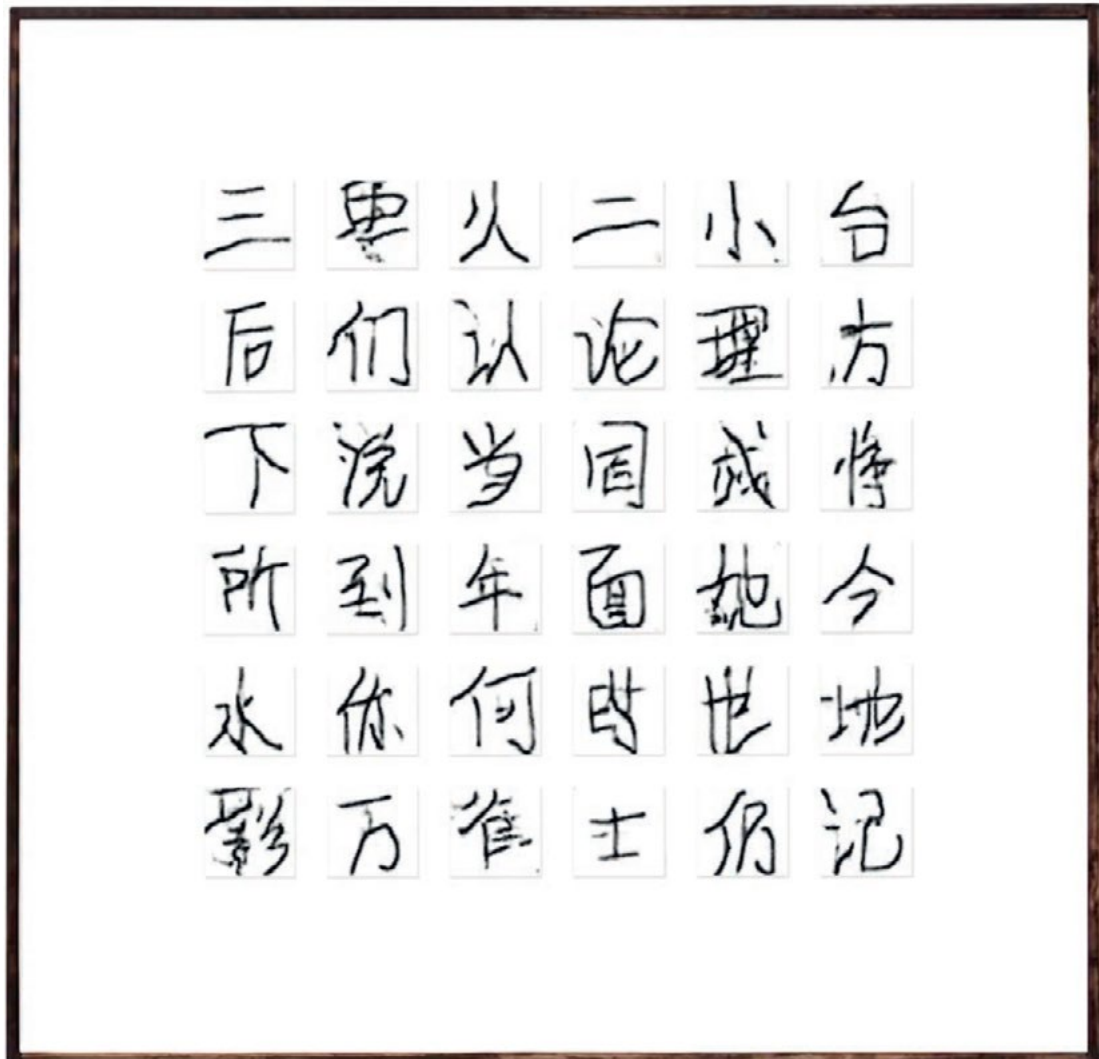 三 火 二 小 台
后 们 认 论 理 方
下 说 当 或
所 到 年 面 她 今
水 你 何 时 世 地
影 万 士 仍 记